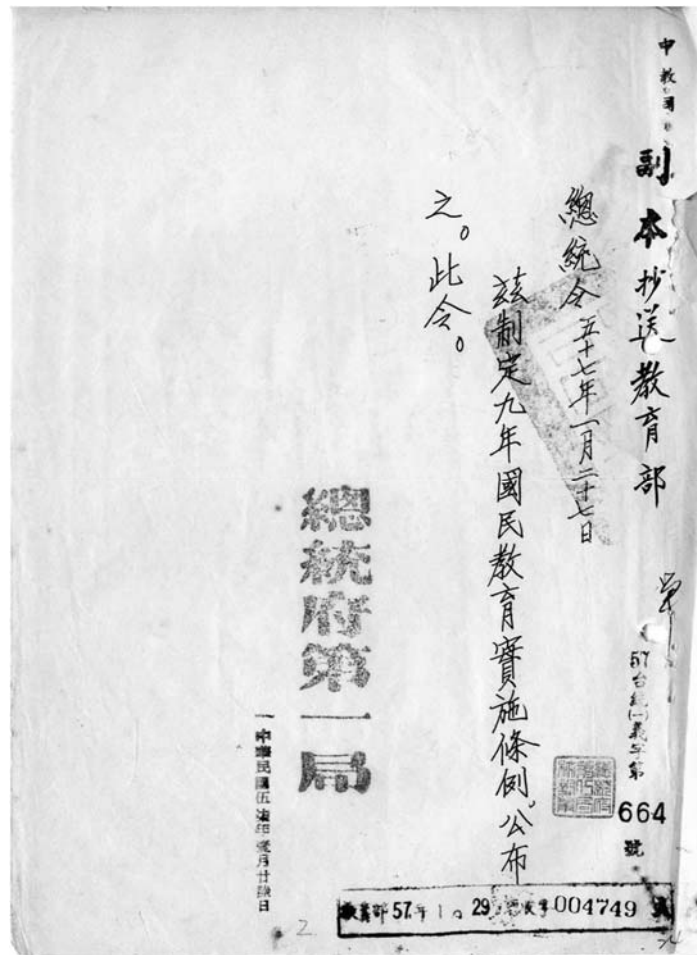 中教司
副本抄送教育部
57台統(一)義字第664號
總統令 五十七年一月二十七日
茲制定九年國民教育實施條例,公布
之。此令。
總統府第一局
中華民國伍柒年壹月廿
教育部 57年1 29 收字 004749